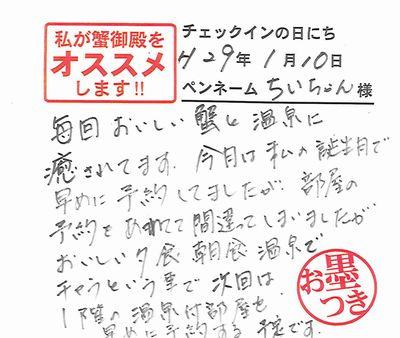 私が蟹御殿を
オススメ
します!!
チェックインの日にち
H29年1月10日
ペンネーム ちいちゃん 様
毎回おいしい蟹と温泉に
癒されてます。今月は私の誕生月で
早めに予約してましたが 部屋の
予約をあわてて間違ってしまいましたが
おいしい夕食 朝食 温泉で
チャラという事で 次回は
1階の温泉付部屋を
早めに予約する予定です。
お墨
つき